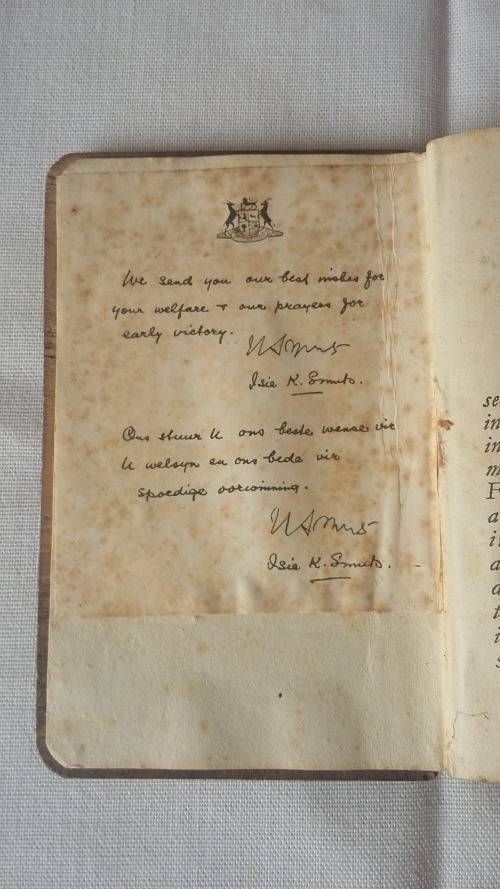 We send you our best wishes for
your welfare & our prayers for
early victory.
Isie K. Smuts.
Ons stuur U ons beste wense vir
U welsyn en ons bede vir
spoedige oorwinning.
Isie K. Smuts.
in
in